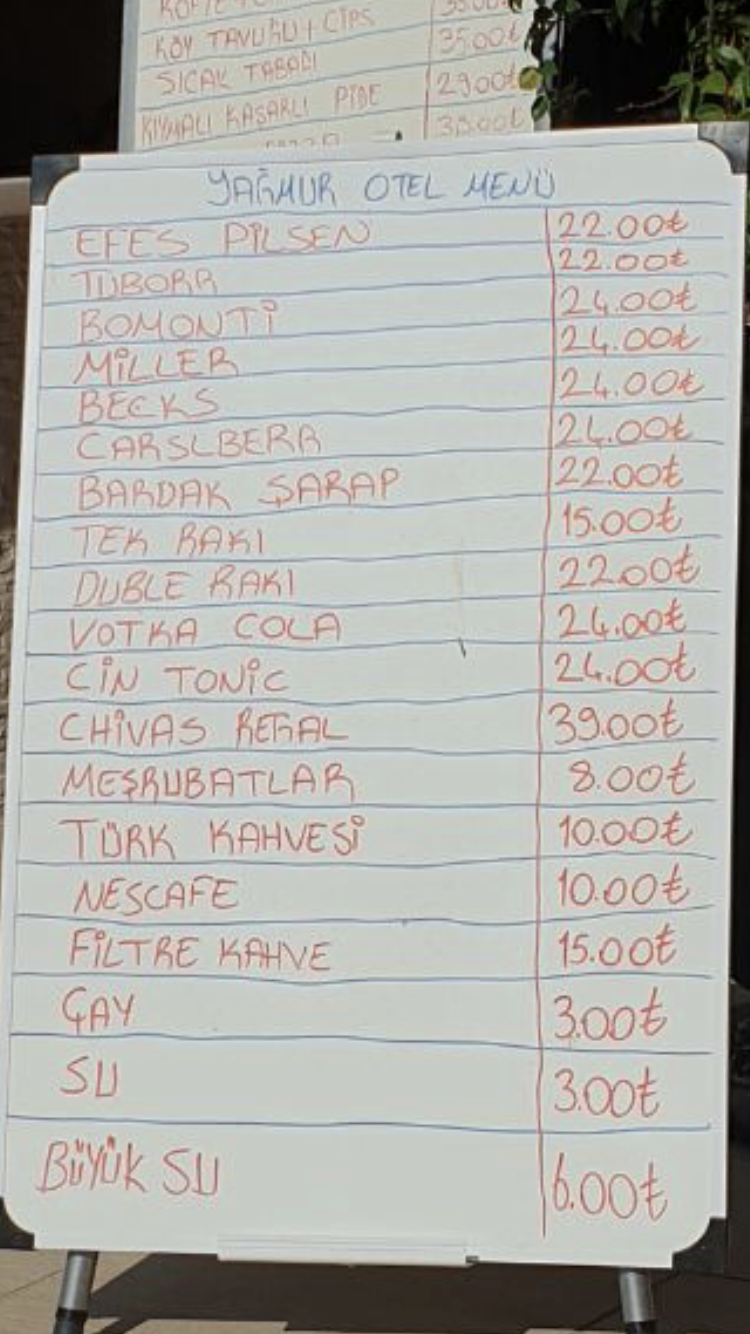 KÖY TAVUĞU + CİPS 35.00₺
SICAK TABAĞI 29.00₺
KIYMALI KAŞARLI PİDE 30.00₺
YAĞMUR OTEL MENÜ
EFES PİLSEN 22.00₺
TUBORR 22.00₺
BOMONTİ 24.00₺
MİLLER 24.00₺
BECKS 24.00₺
CARSLBERR 24.00₺
BARDAK ŞARAP 22.00₺
TEK RAKI 15.00₺
DUBLE RAKI 22.00₺
VOTKA COLA 24.00₺
CİN TONİC 24.00₺
CHİVAS REGAL 39.00₺
MEŞRUBATLAR 8.00₺
TÜRK KAHVESİ 10.00₺
NESCAFE 10.00₺
FİLTRE KAHVE 15.00₺
ÇAY 3.00₺
SU 3.00₺
BÜYÜK SU 6.00₺